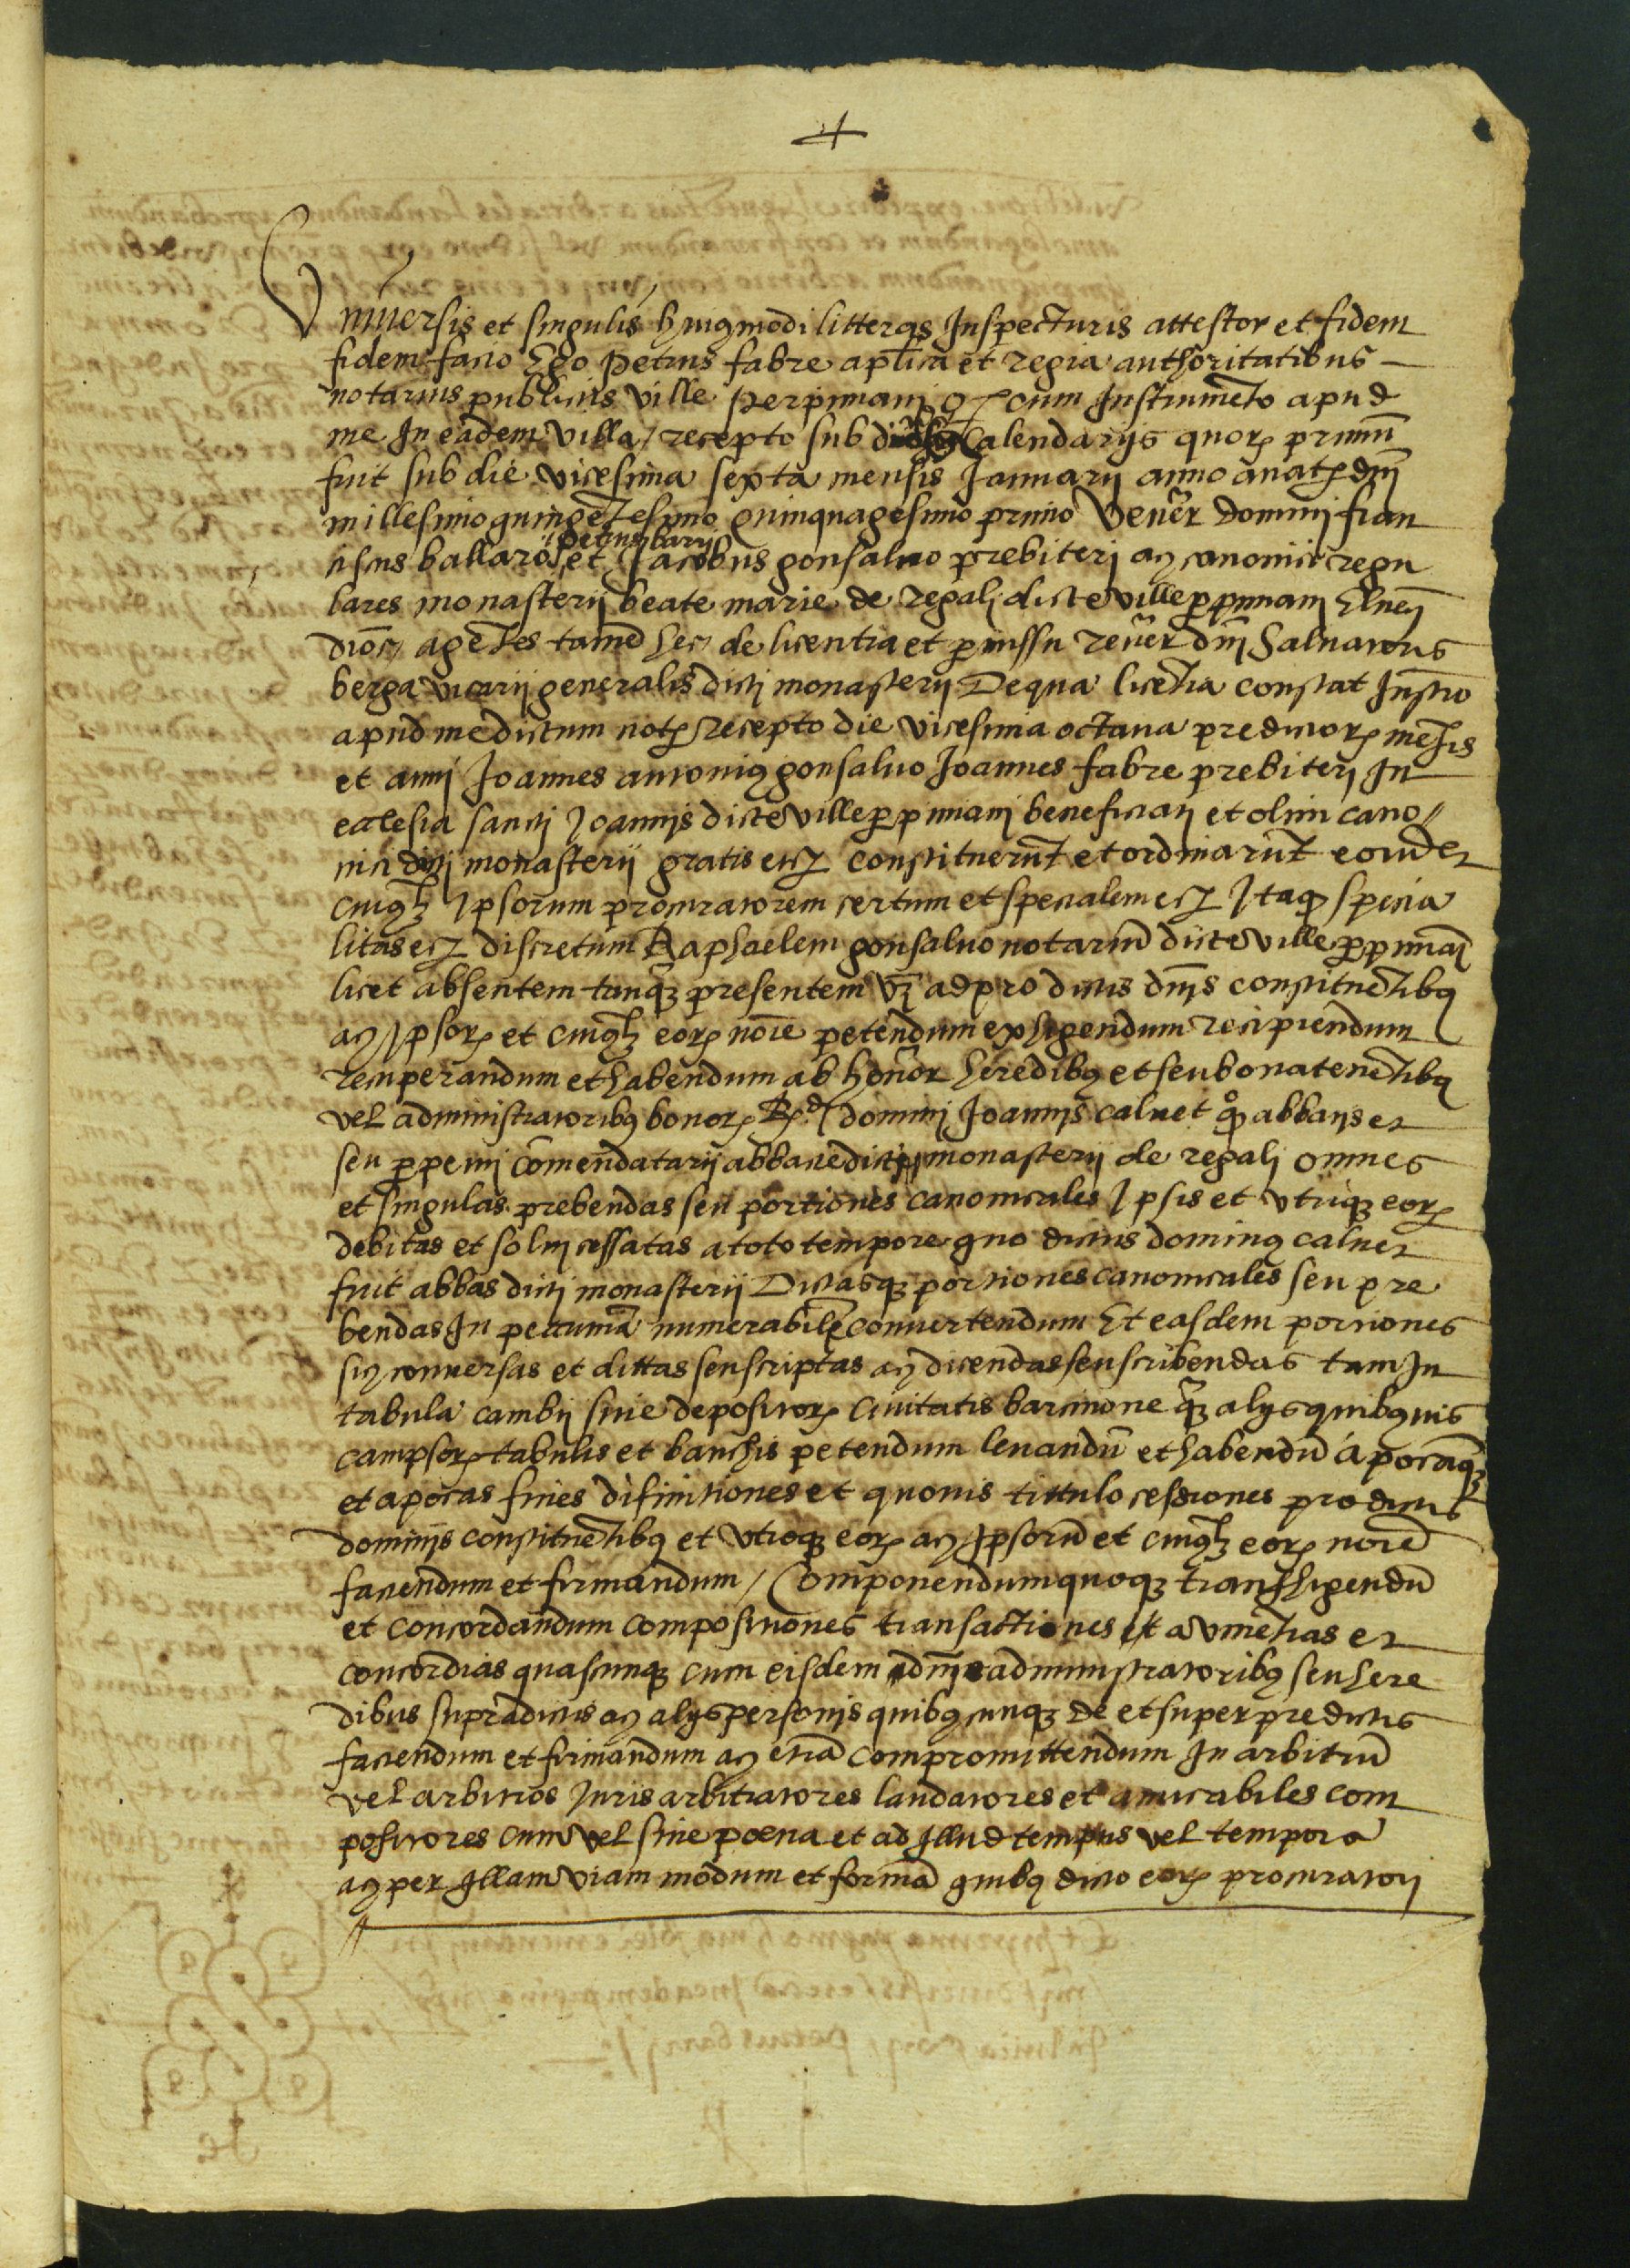 Universis et singulis huiusmodi litteras Inspecturis attestor et fidem
fidem facio Ego Petrus fabre aplica et regia authoritatibus
notarius publicus ville perpiniani q cum Instrumeto apud
me In eadem villa / recepto sub Calendariis quor primu
fuit sub die vicesima sexta mensis Januarii anno a nat dni
millesimo quingetesimo quinquagesimo primo Vener domini fran
petrus barii
ciscus ballaro et Jacobus gonsalvo prebiteri ac canonici regu
lares monasterii beate marie de regali dicte ville perpiniani Elnen
dioc agetes tame hec de licentia et permissu rever dni Salvatoris
berga vicarii generalis dicti monasterii De qua licetia constat Instro
apud me dictum not recepto die vicesima octava predictor mesis
et anni Joannes antonius gonsalvo Joannes fabre prebiteri In
ecclesia sancti Joannis dicte ville perpiniani beneficiati et olim cano//
nici dicti monasterii gratis etc constituerut et ordinarut eorudem et
cuiuslz Ipsorum procuratorem certum et specialem etc Itaque specia
litas etc discretum Raphaelem gonsalvo notariu dicte ville perpiniani
licet absentem tanquam presentem vz ad pro dictis dnis constituetibus
ac Ipsor et cuiuslz eor noie petendum exhigendum recipiendum
recuperandum et habendum ab honor heredibus et seu bonatenetibus
vel administratoribus bonor Rdi domini Joannis calvet qo abbatis et
seu perpetui comendatarii abbatie dicti monasterii de regali omnes
et singulas prebendas seu portiones canonicales Ipsis et utrique eor
debitas et solui cessatas a toto tempore quo dictus dominus calvet
fuit abbas dicti monasterii Dictasque portiones canonicales seu pre
bendas In pecunia numerabile convertendum Et easdem portiones
sic conversas et dittas seu scriptas ac dicendas seu scribendas tam In
tabula cambii sive depositor Civitatis barcinone q aliis quibusvis
campsor tabulis et banchis petendum levandu et habendu apocaque
et apocas fines difinitiones et quovis tittulo cessiones pro dictis
dominis constituetibus et utroque eor ac Ipsoru et cuiuslz eor noie
faciendum et firmandum / Componendum quoque transhigendu
et concordandum compositiones transactiones et avinetias et
concordias quascunque cum eisdem administratoribus seu here
dibus supradictis ac aliis personis quibuscunque de et super predictis
faciendum et firmandum ac etia compromittendum In arbitru
vel arbitros Juris arbitratores laudatores et amicabiles com
positores cum vel sine poena et ad Illud tempus vel tempora
ac per Illam viam modum et forma quibus dicto eor procuratori